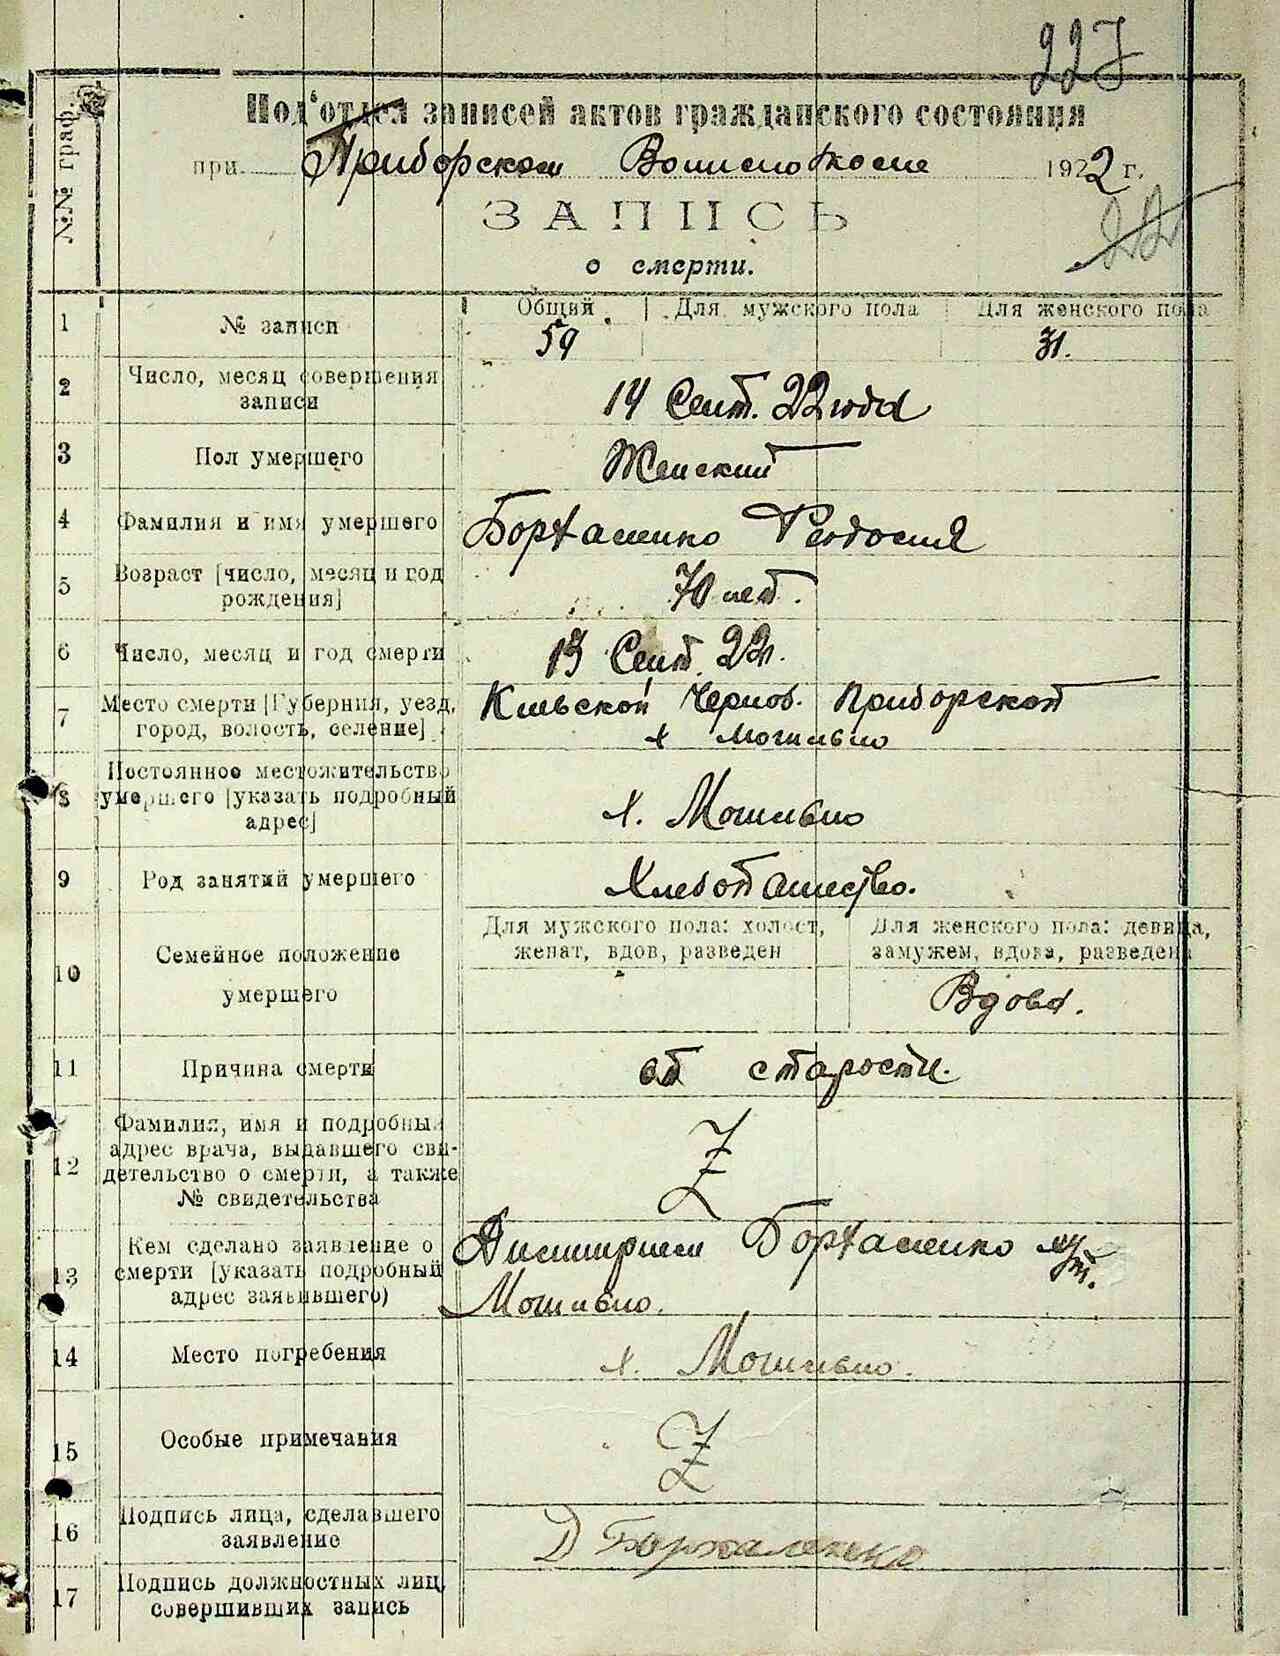 227
№№ граф.
Под'отдел записей актов гражданского состояния
при Приборском Волисполкоме 1922 г.
22
ЗАПИСЬ
о смерти.
1 № записи Общий Для мужского пола Для женского пола
59 31.
2 Число, месяц совершения
записи
14 Сент. 22 года
3 Пол умершего Женский
4 Фамилия и имя умершего Борхаленко Феодосия
5 Возраст [число, месяц и год
рождения]
70 лет.
6 Число, месяц и год смерти 13 Сент. 22 г.
7 Место смерти [Губерния, уезд,
город, волость, селение]
Киевской Чернов. Приборской
х Могильно
8 Постоянное местожительство
умершего [указать подробный
адрес]
х. Могильно
9 Род занятий умершего Хлебопашество.
10 Семейное положение
умершего
Для мужского пола: холост,
женат, вдов, разведен
Для женского пола: девица,
замужем, вдова, разведена
Вдова.
11 Причина смерти от старости.
12 Фамилия, имя и подробный
адрес врача, выдавшего сви-
детельство о смерти, а также
№ свидетельства
Z
13 Кем сделано заявление о
смерти [указать подробный
адрес заявившего)
Димитрием Борхаленко хут.
Могильно.
14 Место погребения х. Могильно.
15 Особые примечания Z
16 Подпись лица, сделавшего
заявление
Д Борхаленко
17 Подпись должностных лиц,
совершивших запись